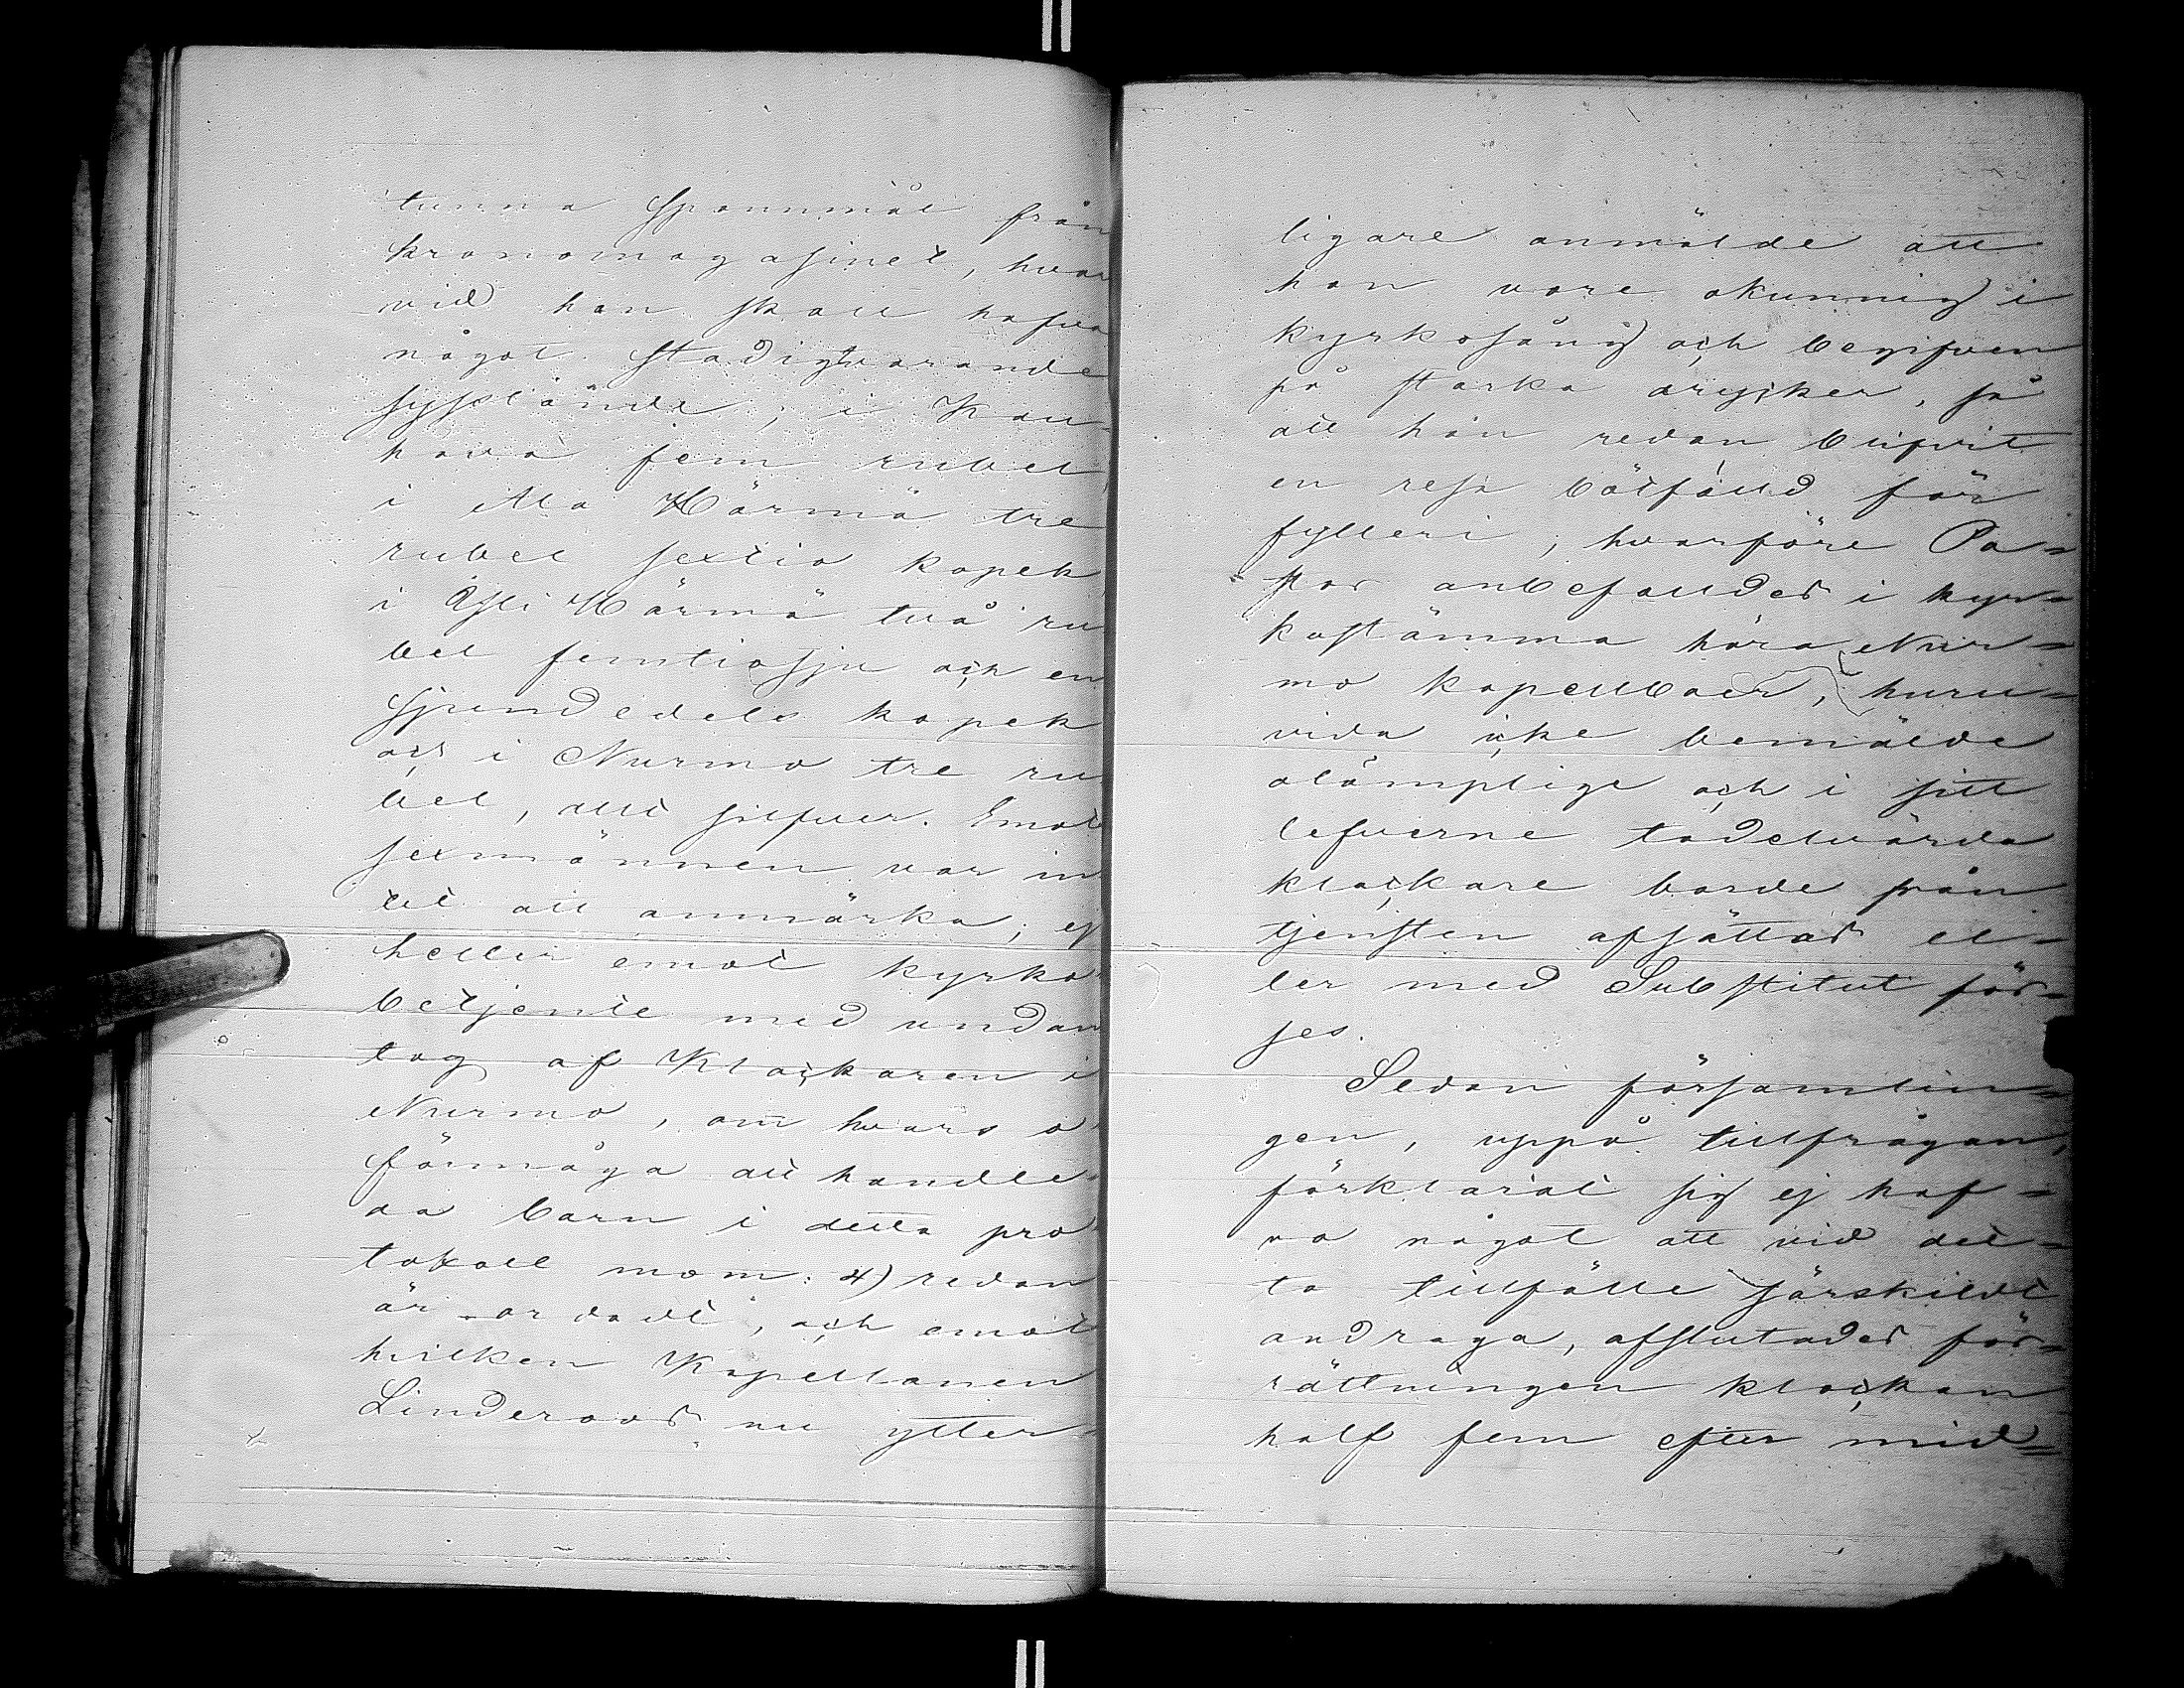 tunna Spannmål från
Kronomagasinet, hvar
vid han skall hafva
något stadigtvarande
sysslände; i Kau-
hava fem rubel,
i Ala Härmä tre
rubel sextio kopek
i Ylli Härmä två ru
bel femtiosju och en
sjundedels kopek
och i Nurmo tre ru
bel, allt silfver. Emot
sexmännen var in
tet att anmärka; ej
heller emot kyrko
betjente med undan
tag af Klockaren i
Nurmo, om hvars o
förmåga att handle
da barn i detta pro
tokoll mom: 4) redan
är ordadt, och emot
hvilken Kapellanen
Linderoos nu ytter-
ligare anmälde att
han vore okunnig i
kyrkosång och begifven
på starka drycker, så
att han redan blifvit
en resa bötfälld för
fylleri; hvarföre Pa-
stor anbefalldes i kyr-
kostämma höra Nur-
mo kapellboer, huru-
vida icke bemälde
olämplige och i sitt
lefverne tadelvärda
klockare borde från
tjensten afsättas el-
ler med Substitut för-
ses.
Sedan församlin-
gen, uppå tillfrågan,
förklarat sig ej haf-
va något att vid det-
ta tillfälle särskildt
andraga, afslutades för-
rättningen klockan
half fem efter mid-